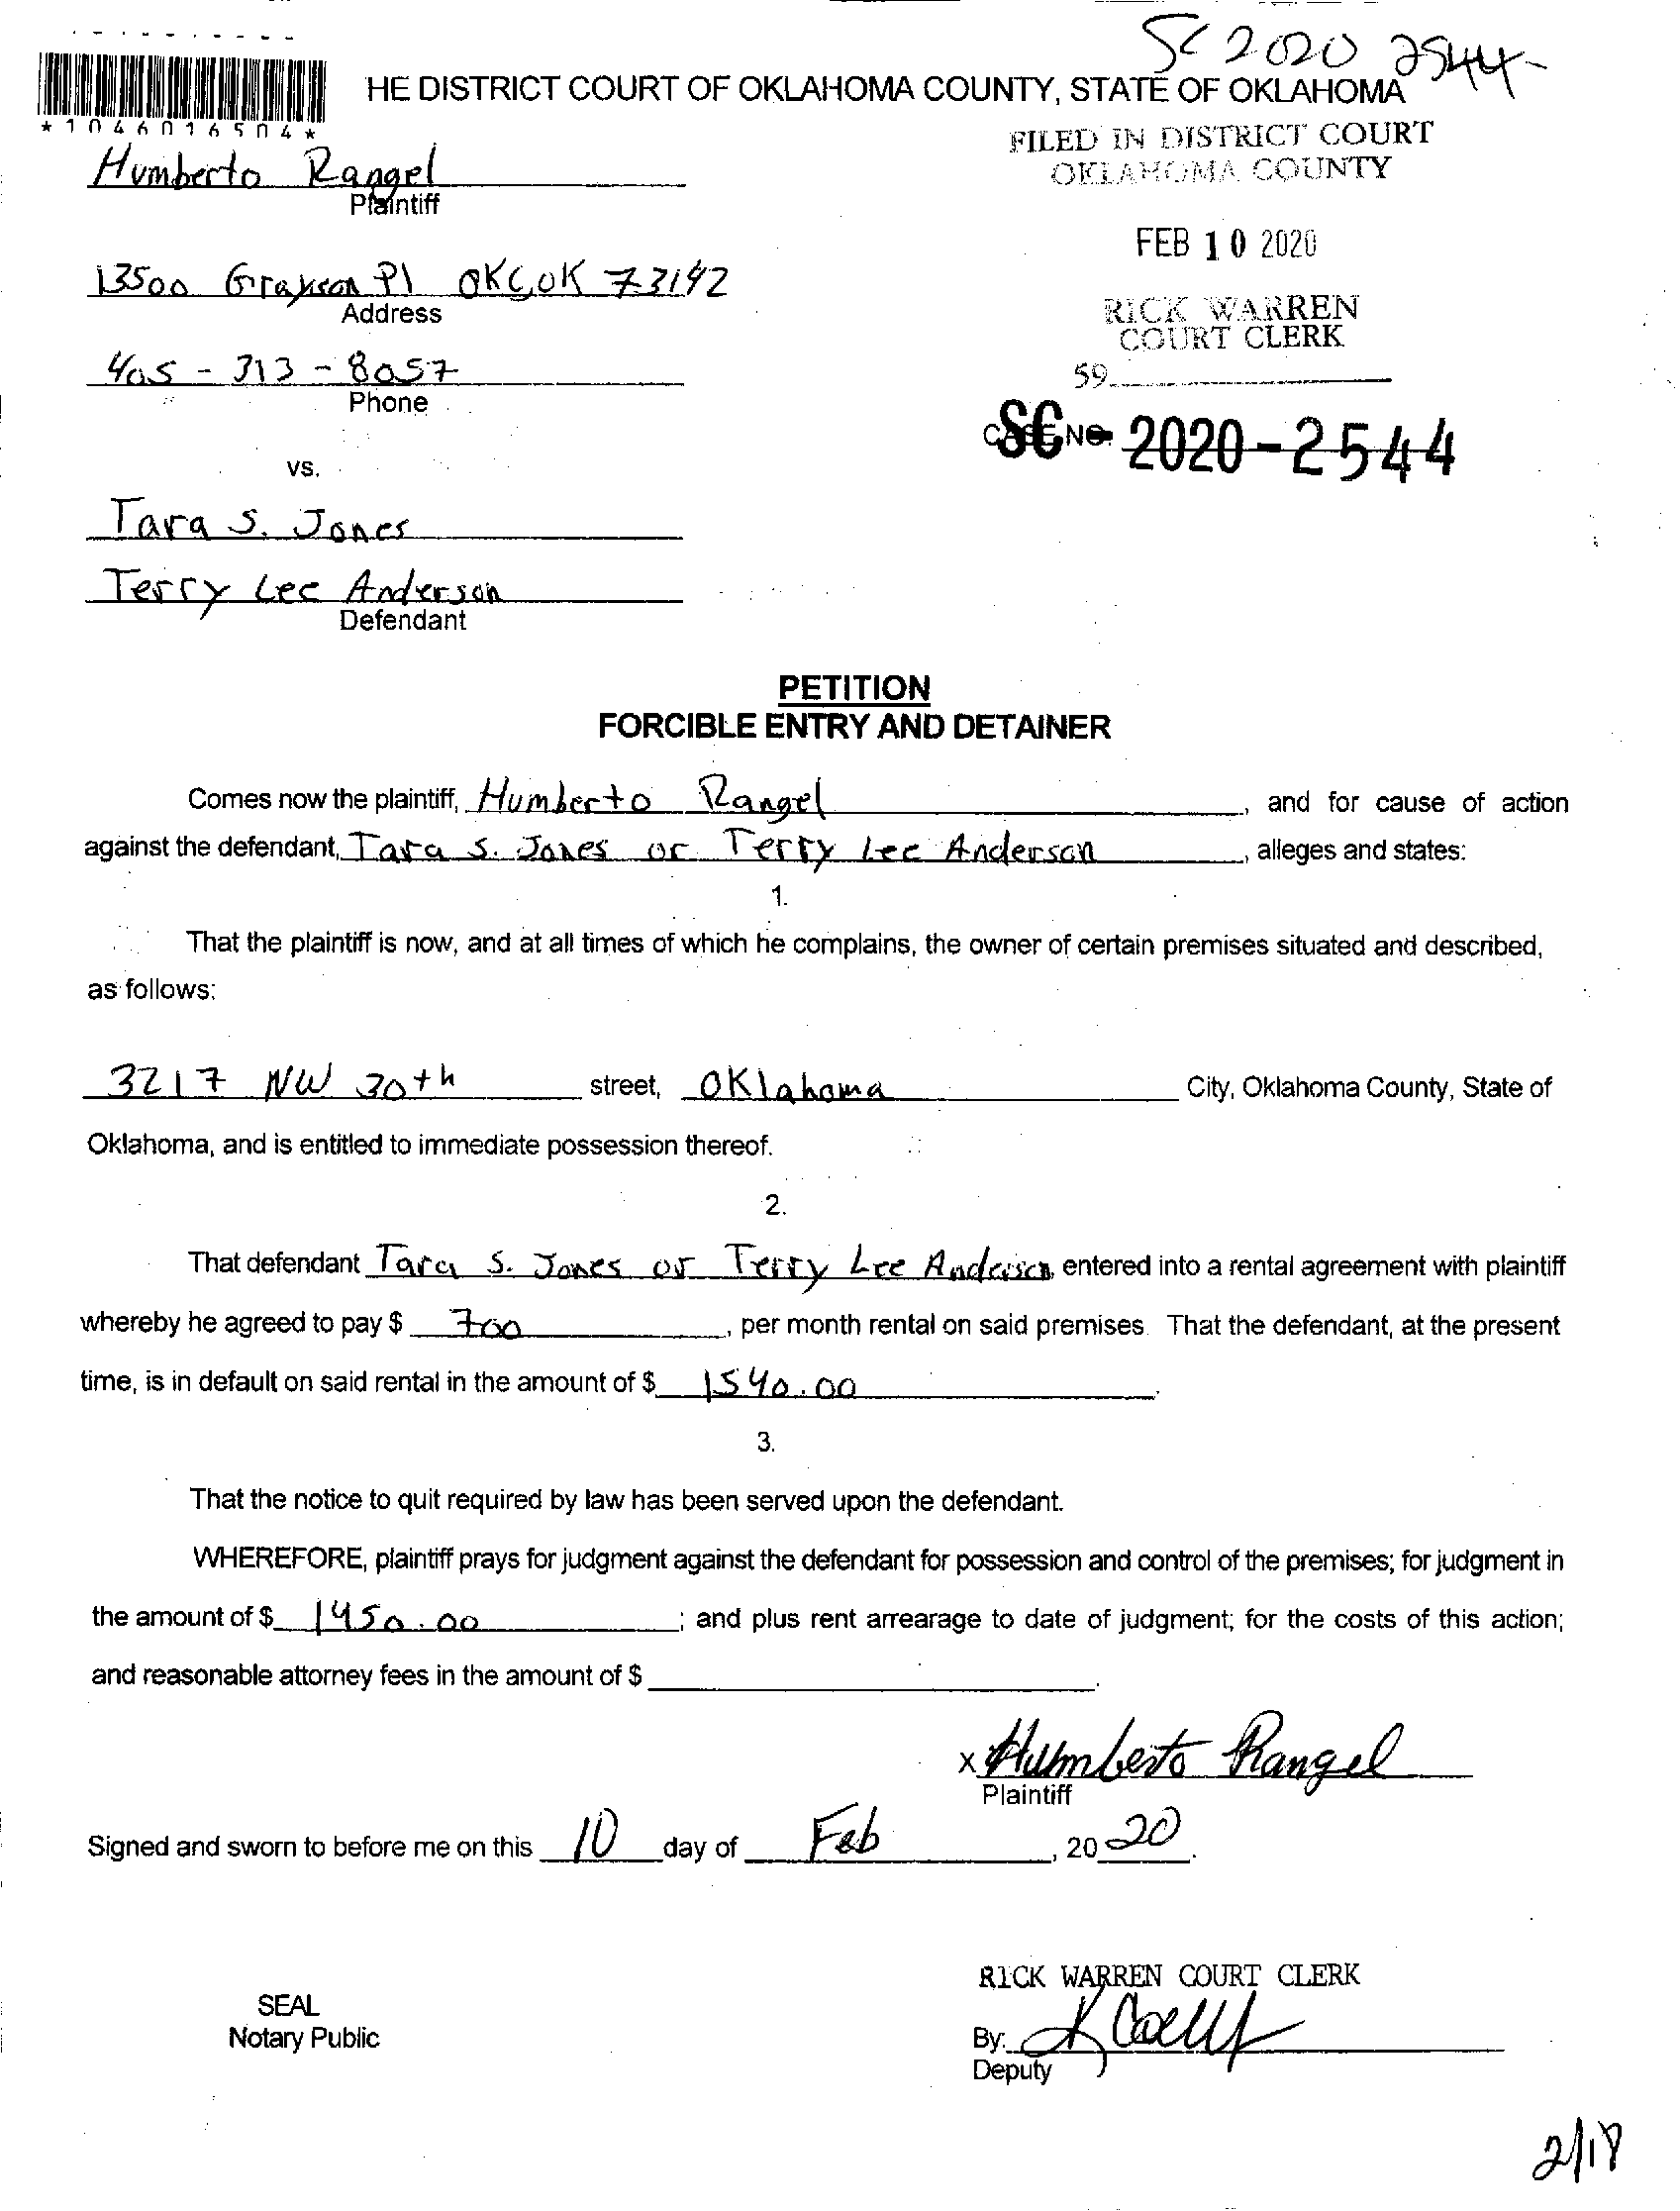 SC 2020 2544
HE DISTRICT COURT OF OKLAHOMA COUNTY, STATE OF OKLAHOMA
*1046016504*
FILED IN DISTRICT COURT
OKLAHOMA COUNTY
Humberto Rangel
Plaintiff
FEB 10 2020
13500 Grayson Pl OKC, OK 73142
Address
RICK WARREN
COURT CLERK
405-313-8057
Phone
59
SC NO. 2020-2544
vs.
Tara S. Jones
Terry Lee Anderson
Defendant
PETITION
FORCIBLE ENTRY AND DETAINER
Comes now the plaintiff, Humberto Rangel, and for cause of action
against the defendant, Tara S. Jones or Terry Lee Anderson, alleges and states:
1.
That the plaintiff is now, and at all times of which he complains, the owner of certain premises situated and described,
as follows:
3217 NW 30th street, Oklahoma City, Oklahoma County, State of
Oklahoma, and is entitled to immediate possession thereof.
2.
That defendant Tara S. Jones or Terry Lee Anderson, entered into a rental agreement with plaintiff
whereby he agreed to pay $ 700, per month rental on said premises. That the defendant, at the present
time, is in default on said rental in the amount of $ 1540.00.
3.
That the notice to quit required by law has been served upon the defendant.
WHEREFORE, plaintiff prays for judgment against the defendant for possession and control of the premises; for judgment in
the amount of $ 1450.00; and plus rent arrearage to date of judgment; for the costs of this action;
and reasonable attorney fees in the amount of $ .
x Humberto Rangel
Plaintiff
Signed and sworn to before me on this 10 day of Feb, 20 20.
RICK WARREN COURT CLERK
SEAL
Notary Public
By:
Deputy
2/18